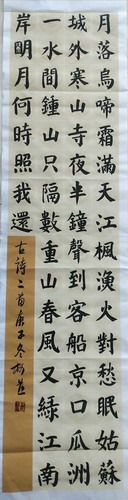 月落烏啼霜滿天江楓漁火對愁眠姑蘇
城外寒山寺夜半鐘聲到客船京口瓜洲
一水間鍾山只隔數重山春風又綠江南
岸明月何時照我還
古詩二首庚子冬